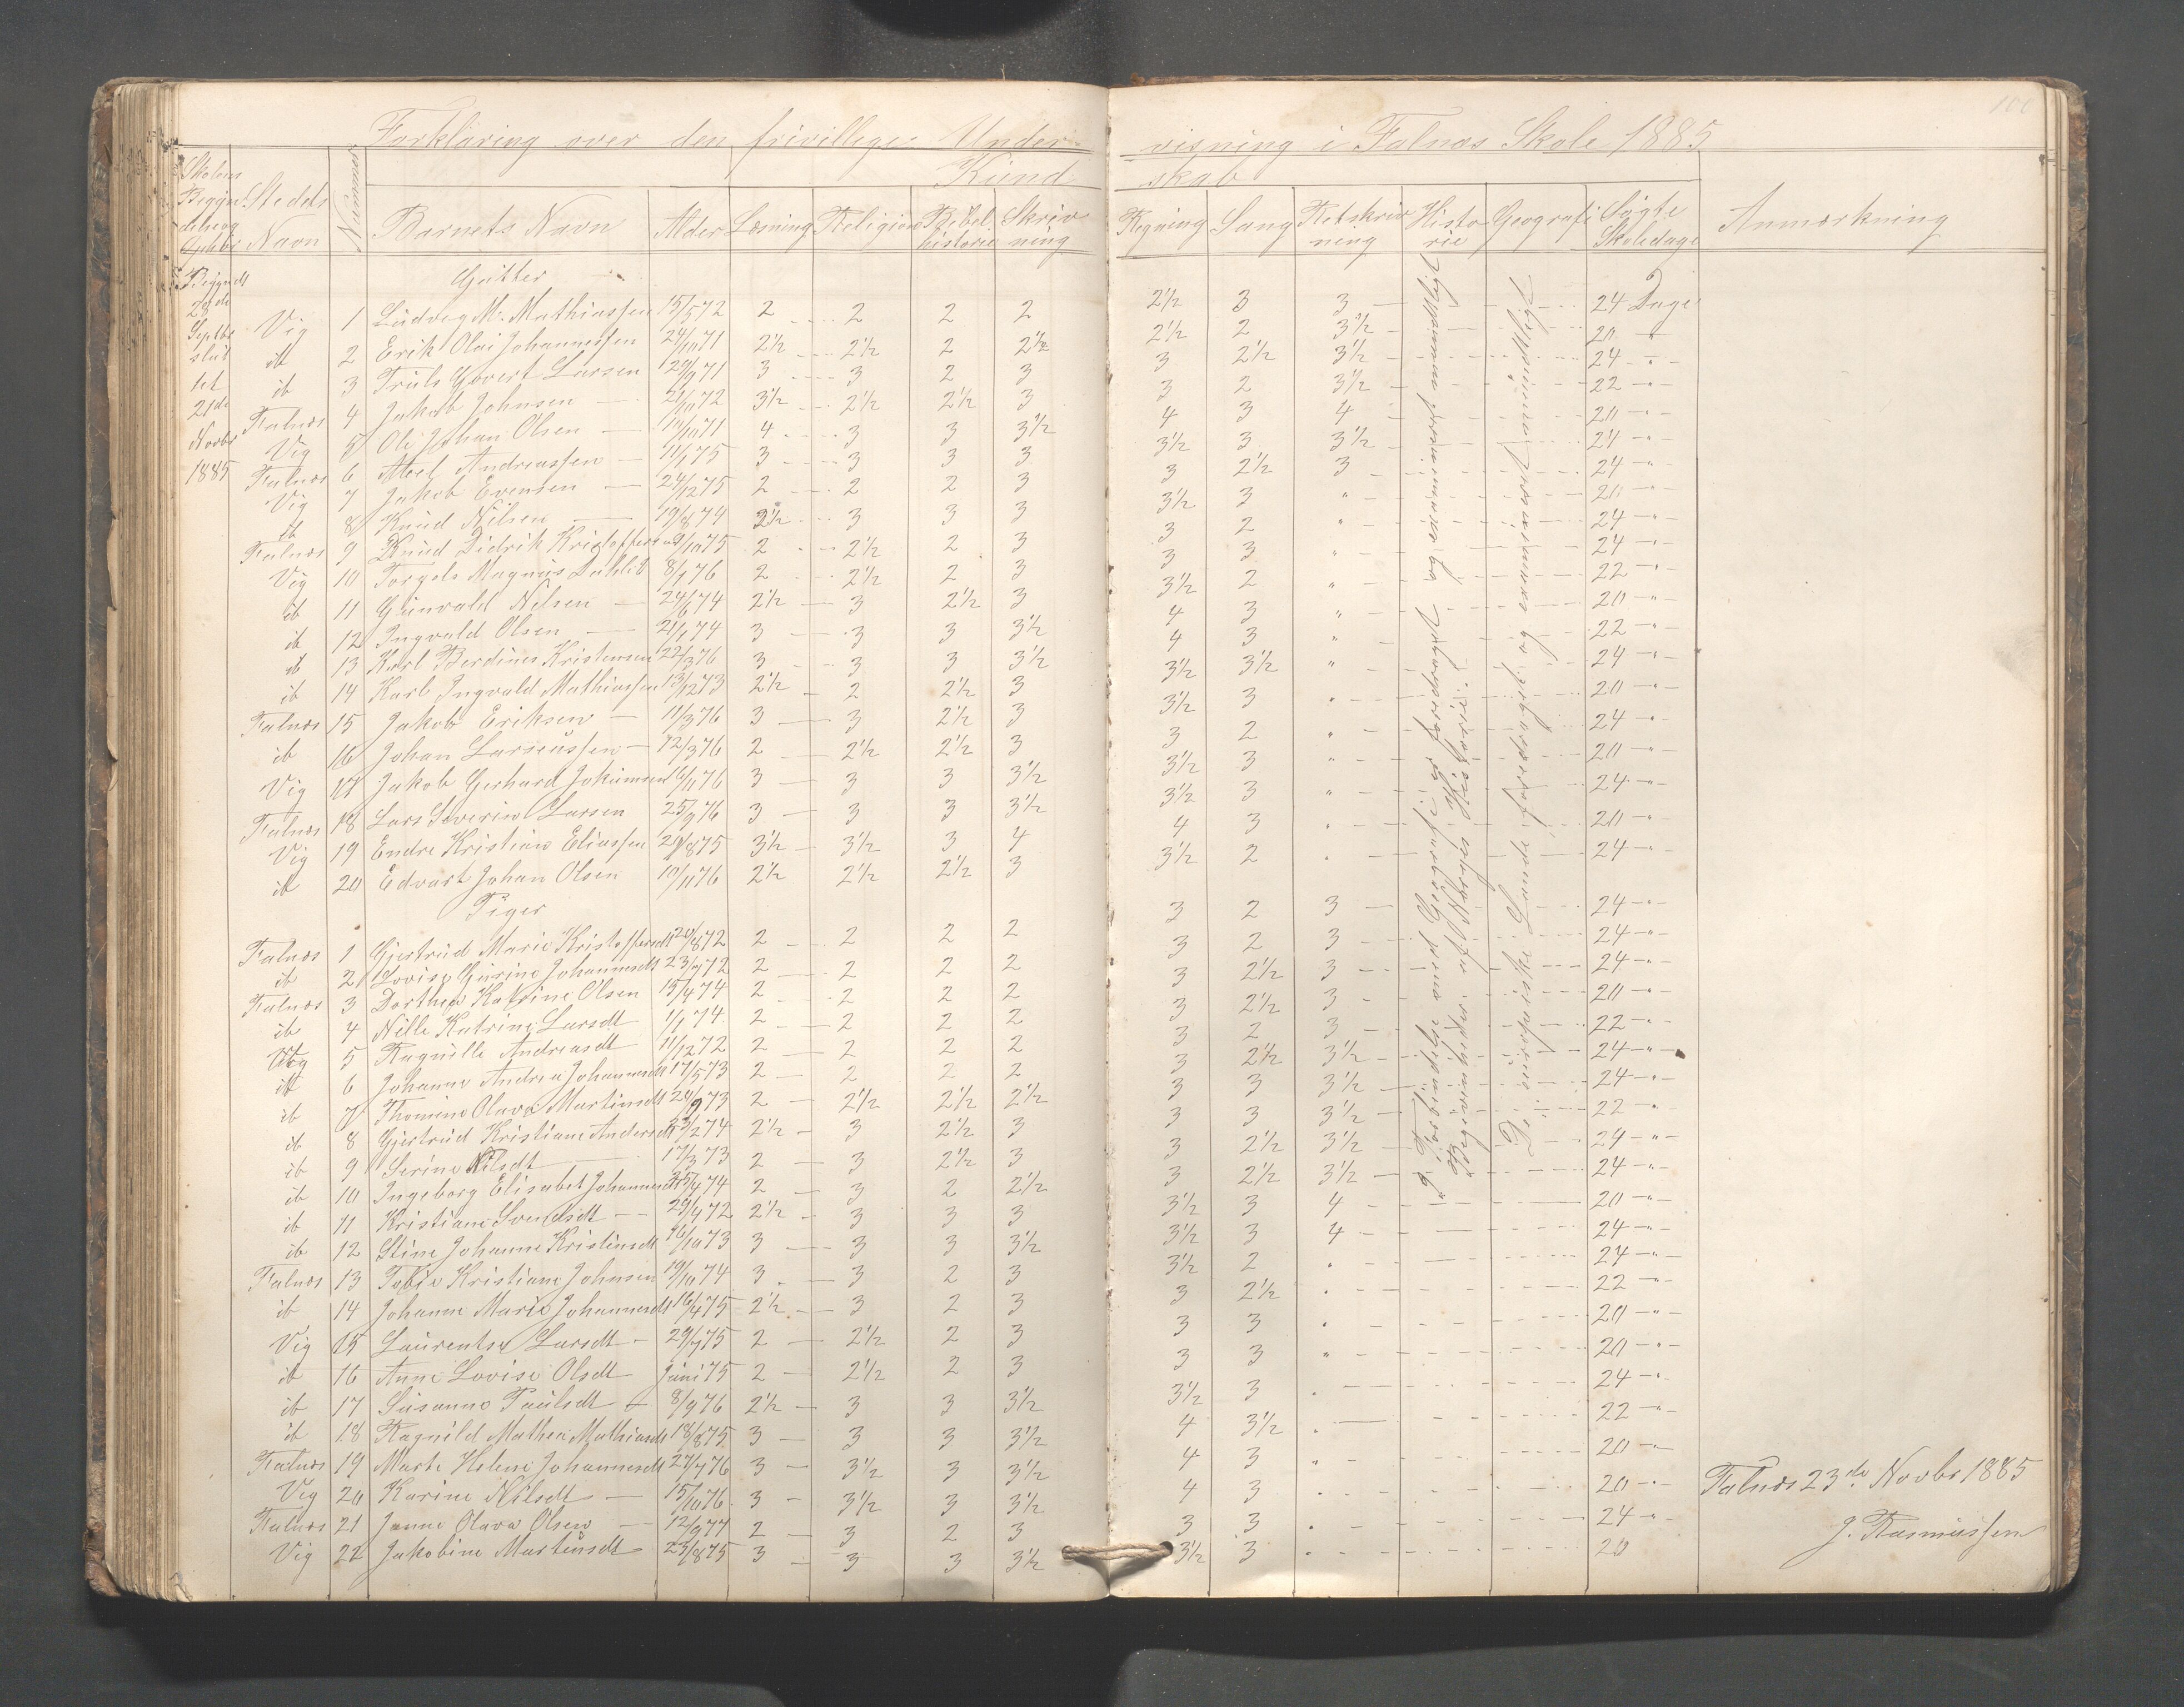 100
Forklaring over den frivillige Undervisning i Falnæs Skole 1885
Kundskab
Skolens Begyndelse og Ophør | Stedets Navn | Nummer | Barnets Navn | Alder | Læsning | Religion | Bibelhistorie | Skrivning | Regning | Sang | Retskrivning | Historie | Geografi | Søgte Skoledage | Anmærkning
Begyndt 28de Septbr slut tet 21de Novbr 1885
Gutter
Vig 1 Ludvig M. Mathiassen 15/5 72 2 2 2 2 2½ 3 3 24 Dage
ib 2 Erik Olai Johannessen 24/10 71 2½ 2½ 2 2½ 2½ 2 3½ 20 "
ib 3 Truls Govert Larsen 3 3 2 3 3 2½ 3½ 24 "
Falnæs 4 Jakob Johnsen 21/10 72 3½ 2½ 2½ 3 3 2 3½ 22 "
Vig 5 Ole Johan Olsen 4 3 3 3½ 4 3 4 20 "
Falnæs 6 Abel Andreassen 11/1 75 3 3 3 3 3½ 3 3½ 24 "
Vig 7 Jakob Evensen 24/12 75 2 2 2 3 3 2½ 3 24 "
ib 8 Knud Nilsen 19/8 74 2½ 3 3 3 3½ 3 " 20 "
Falnæs 9 Knud Didrik Kristoffersen 2 2½ 2 3 3 2 " 24 "
Vig 10 Torgels Magnus Dahlie 8/1 76 2 2½ 2 3 3 3 " 24 "
ib 11 Gunvald Nilsen 24/6 74 2½ 3 2½ 3 3½ 2 " 22 "
ib 12 Ingvald Olsen 21/1 74 3 3 3 3½ 4 3 " 20 "
ib 13 Karl Berdines Kristensen 22/3 76 3 3 3 3½ 4 3 " 22 "
ib 14 Karl Ingvald Mathiassen 13/12 73 2½ 2 2½ 3 3½ 3½ " 24 "
Falnæs 15 Jakob Eriksen 11/3 76 3 3 2½ 3 3½ 3 " 20 "
ib 16 Johan Larseussen 12/3 76 2 2½ 2½ 3 3 2 " 24 "
Vig 17 Jakob Gerhard Jokumsen 16/11 76 3 3 3 3½ 3½ 3 " 20 "
Falnæs 18 Lars Severin Larsen 25/9 76 3 3 3 3½ 3½ 3 " 24 "
Vig 19 Endre Kristian Eliassen 3½ 3½ 3 4 4 3 " 20 "
ib 20 Edvart Johan Olsen 10/11 76 2½ 2½ 2½ 3 3½ 2 " 24 "
Piger
Falnæs 1 Gjertrud Marie Kristoffersdt 20/8 72 2 2 2 2 3 2 3 24 "
ib 2 Lovise Gurine Johannesdt 2 2 2 2 3 2 3 24 "
Falnæs 3 Dorthea Katrine Olsen 15/4 74 2 2 2 2 3 2½ 3 24 "
ib 4 Nille Katrine Larsdt 1/1 74 2 2 2 2 3 2½ 3 20 "
Vig 5 Ragnille Andreasdt 11/12 72 2 2 2 2 3 2 3 22 "
ib 6 Johanne Andrea Johannesdt 17/5 73 2 2 2 2 3 2½ 3½ 24 "
ib 7 Thomine Olava Martinsdt 20/9 73 2 2½ 2½ 2½ 3 3 3½ 24 "
ib 8 Gjertrud Kristiane Andersdt 2½ 3 2½ 3 3 3 3½ 22 "
ib 9 Serine Nilsdt 17/3 73 2 3 2½ 3 3 2½ 3½ 24 "
ib 10 Ingeborg Elisabet Johannesdt 2 3 2 2½ 3 2½ 3½ 24 "
ib 11 Kristiane Svendsdt 2½ 3 3 3 3½ 3 4 20 "
ib 12 Stine Johanne Kristensdt 16/10 73 3 3 3 3½ 3½ 3 4 24 "
Falnæs 13 Tobie Kristiane Johnsen 19/10 74 3 3 2 3 3½ 2 " 24 "
ib 14 Johanne Marie Johannesdt 16/4 75 2½ 3 2 3 3 2½ " 22 "
Vig 15 Laurentse Larsdt 2 2½ 2 3 3 3 " 20 "
ib 16 Anne Lovise Olsdt Juni 75 2 2½ 2 3 3 3 " 20 "
ib 17 Susanne Paulsdt 8/9 76 2½ 3 3 3½ 3½ 3 " 24 "
ib 18 Ragnild Mathea Mathiasdt 18/8 75 3 3 3 3½ 4 3½ " 22 "
Falnæs 19 Marte Helene Johannesdt 27/7 76 3 3½ 3 3½ 4 3 " 20 "
Vig 20 Karine Nilsdt 15/10 76 3 3½ 3 3½ 4 3 " 20 "
Falnæs 21 Janne Olava Olsen 12/9 77 2 3 2 3 3 3 " 24 "
Vig 22 Jakobine Martinsdt 23/8 75 3 3 3 3½ 3½ 3 " 20
I Forbindelse med Geografi er foredraget og examineret mundtligt
Begivenheder af Norges Historie.
De europæiske Lande, foredraget og examineret mundtligt
Falnæs 23de Novbr 1885
J. Rasmussen